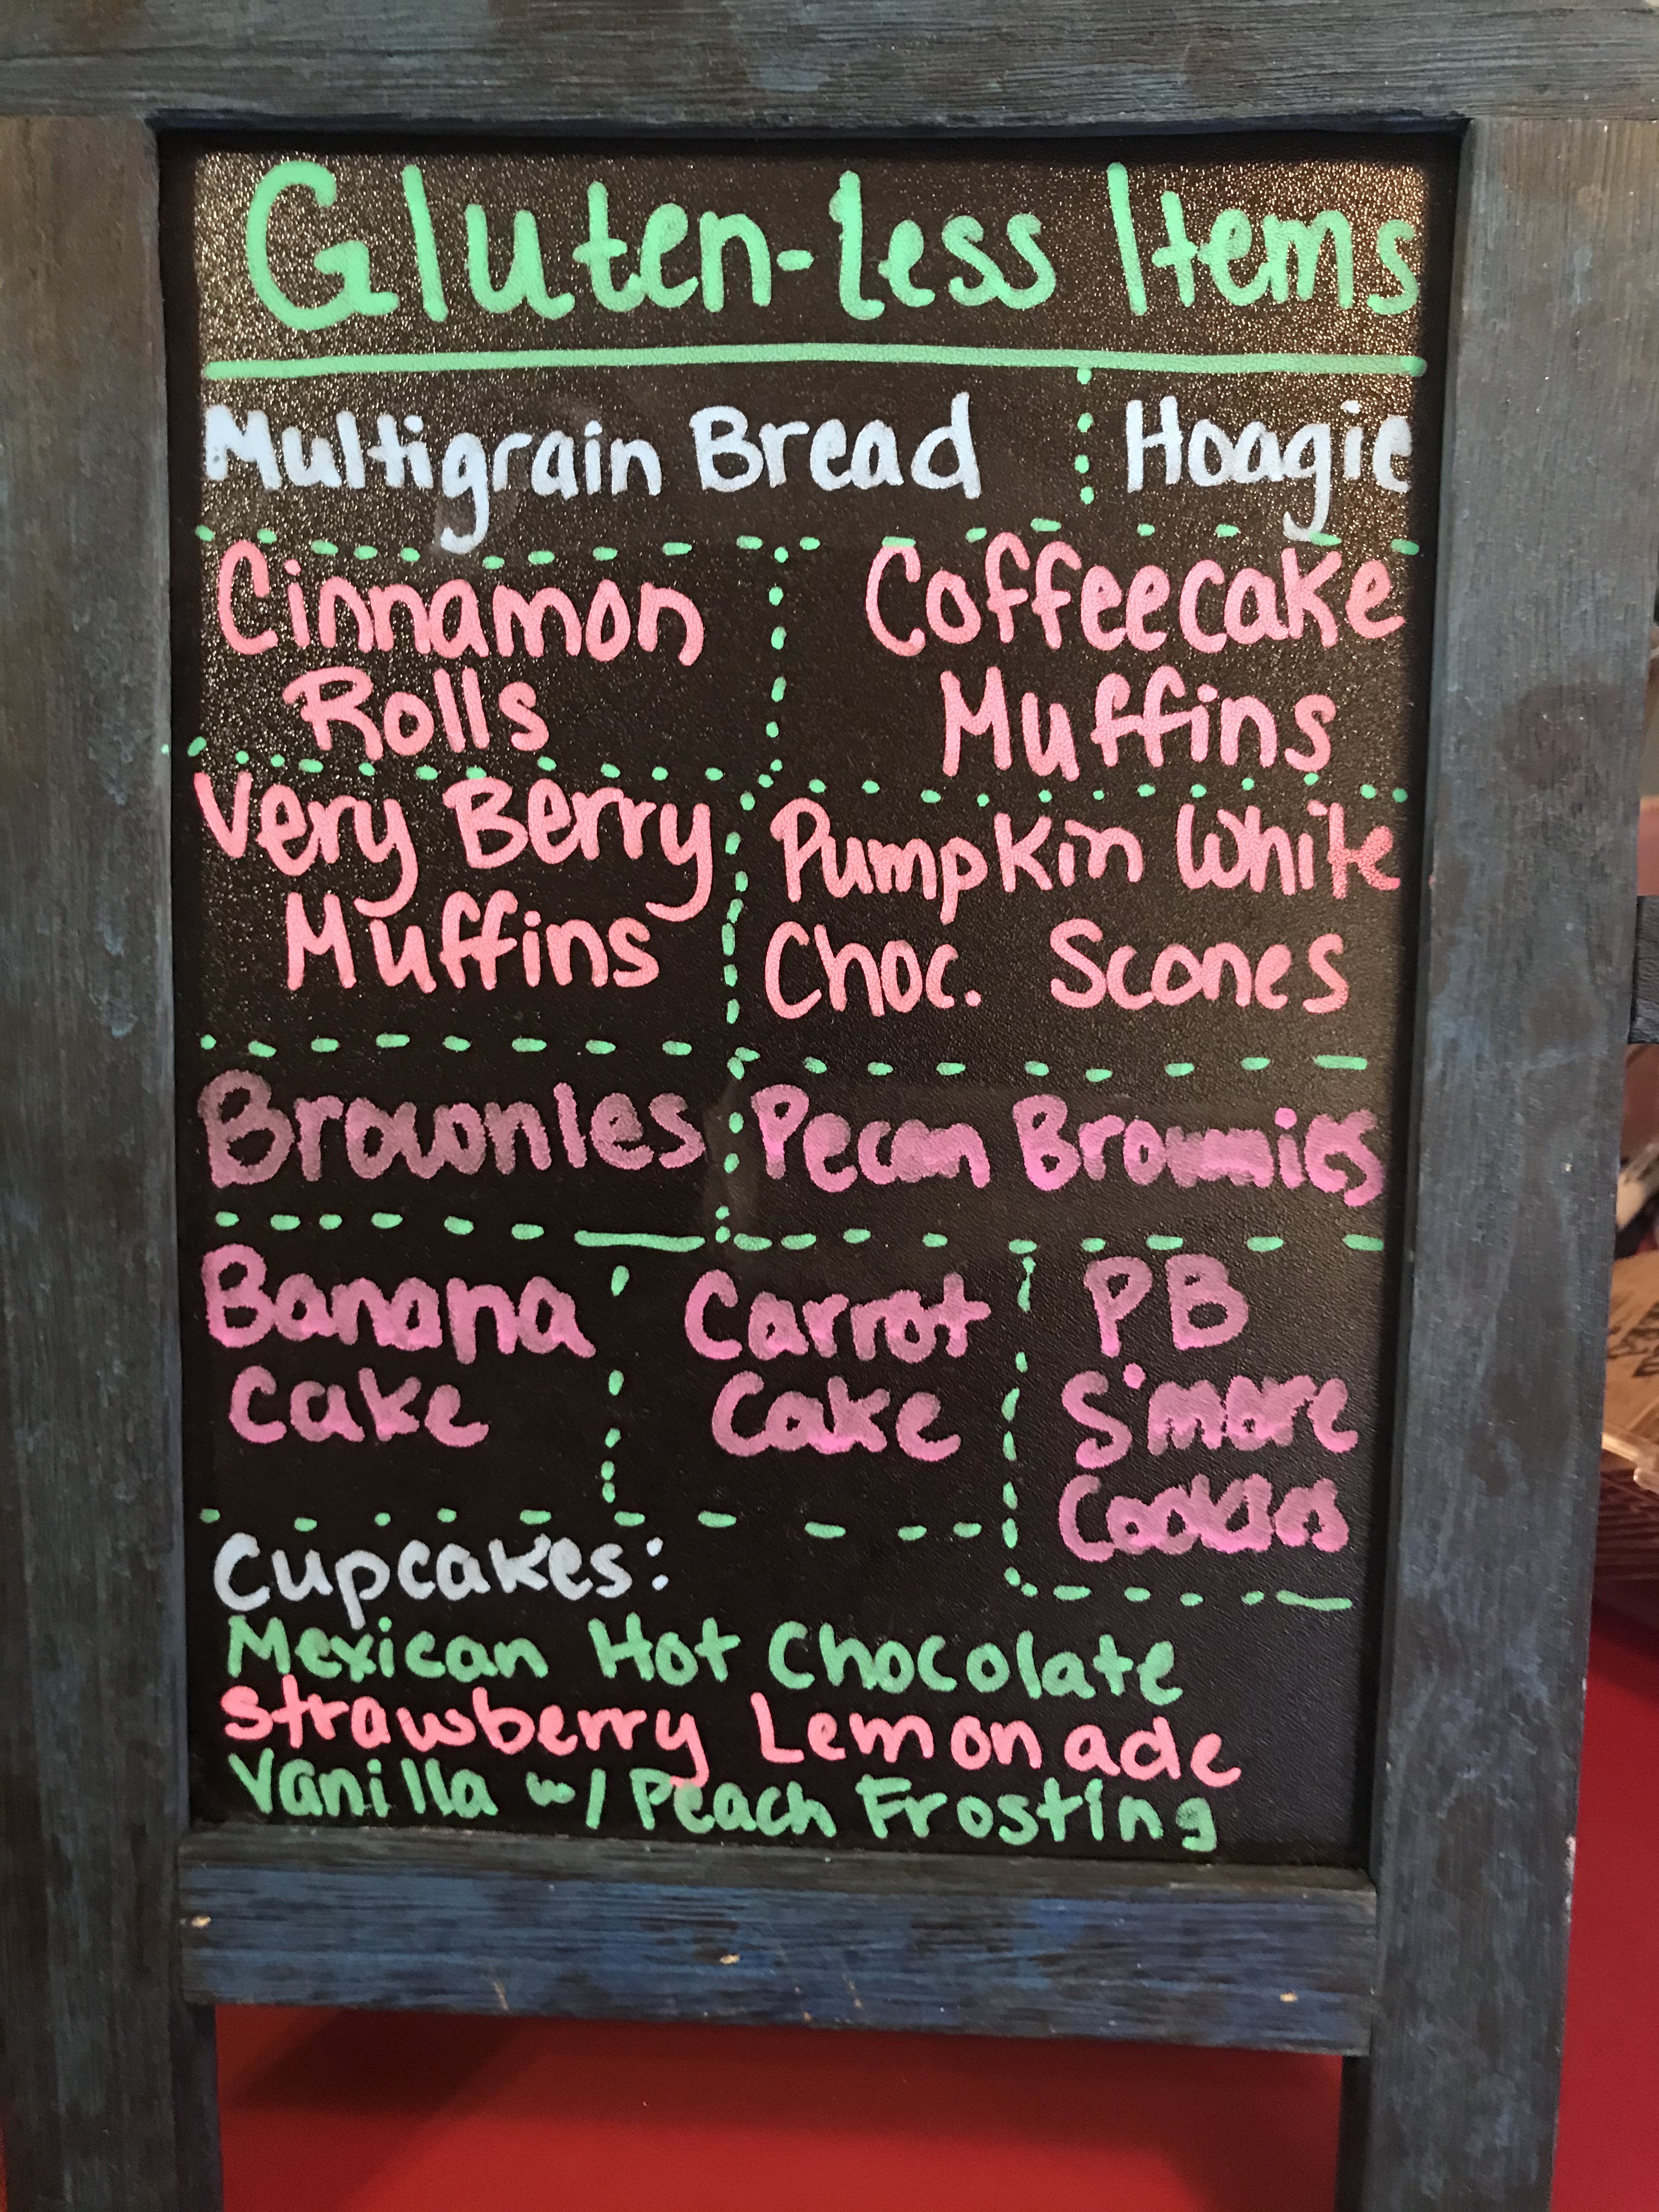 Gluten-less Items
Multigrain Bread
Hoagie
Cinnamon
Rolls
Coffeecake
Muffins
Very Berry
Muffins
Pumpkin White
Choc. Scones
Brownies
Pecan Brownies
Banana
Cake
Carrot
Cake
PB
S'more
Cookies
Cupcakes:
Mexican Hot Chocolate
Strawberry Lemonade
Vanilla w/ Peach Frosting